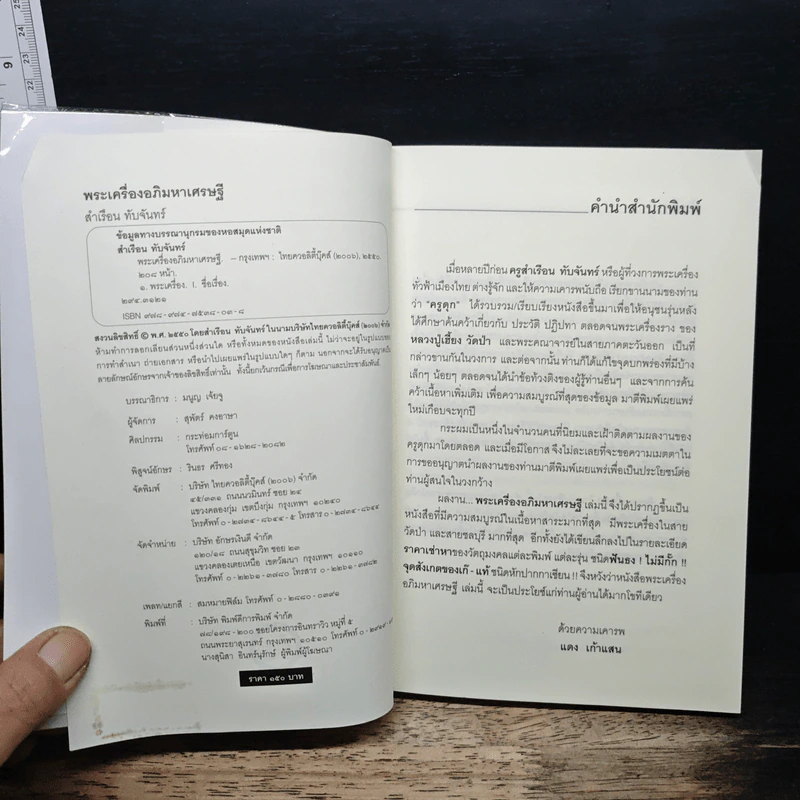 9
พระเครื่องอภิมหาเศรษฐี
สำเรือน ทับจันทร์
ข้อมูลทางบรรณานุกรมของหอสมุดแห่งชาติ
สำเรือน ทับจันทร์
พระเครื่องอภิมหาเศรษฐี. – กรุงเทพฯ : ไทยควอลิตี้บุ๊คส์ (2006), ๒๕๕๐
๒๐๘ หน้า.
๑. พระเครื่อง. I. ชื่อเรื่อง.
๒๙๔.๓๑๒๑
ISBN ๙๗๘-๙๗๔-๗๕๓๘-๐๓-๘
สงวนลิขสิทธิ์ © พ.ศ. ๒๕๕๐ โดยสำเรือน ทับจันทร์ ในนามบริษัทไทยควอลิตี้บุ๊คส์ (๒๐๐๖) จำกัด
ห้ามทำการลอกเลียนส่วนหนึ่งส่วนใด หรือทั้งหมดของหนังสือเล่มนี้ ไม่ว่าจะอยู่ในรูปแบบของ
การทำสำเนา ถ่ายเอกสาร หรือนำไปเผยแพร่ในรูปแบบใดๆ ก็ตาม นอกจากจะได้รับอนุญาตเป็น
ลายลักษณ์อักษรจากเจ้าของลิขสิทธิ์เท่านั้น ทั้งนี้ยกเว้นกรณีเพื่อการโฆษณาและประชาสัมพันธ์.
บรรณาธิการ : มนูญ เจ้ยจู
ผู้จัดการ : สุพัตร์ คงอาษา
ศิลปกรรม : กระท่อมการ์ตูน
โทรศัพท์ ๐๘-๑๖๒๘-๒๐๘๒
พิสูจน์อักษร : รินอร ศรีทอง
จัดพิมพ์ : บริษัท ไทยควอลิตี้บุ๊คส์ (๒๐๐๖) จำกัด
๔๕/๓๓๑ ถนนนวมินทร์ ซอย ๒๔
แขวงคลองกุ่ม เขตบึงกุ่ม กรุงเทพฯ ๑๐๒๔๐
โทรศัพท์ ๐-๒๗๓๔-๘๖๔๔-๕ โทรสาร ๐-๒๗๓๔-๘๖๔๔
จัดจำหน่าย : บริษัท อักษรเงินดี จำกัด
๑๒๐/๑๘ ถนนสุขุมวิท ซอย ๒๓
แขวงคลองเตยเหนือ เขตวัฒนา กรุงเทพฯ ๑๐๑๑๐
โทรศัพท์ ๐-๒๒๖๑-๓๗๘๐ โทรสาร ๐-๒๒๖๑-๓๗๘
เพลท/แยกสี : สมหมายฟิล์ม โทรศัพท์ ๐-๒๘๘๐-๐๓๙๑
พิมพ์ที่ : บริษัท พิมพ์ดีการพิมพ์ จำกัด
๗๘/๑๙๘-๒๐๐ ซอยโครงการอินทราวิว หมู่ที่ ๕
ถนนพระยาสุเรนทร์ กรุงเทพฯ ๑๐๕๑๐ โทรศัพท์
นางสุนิสา อินทร์นุรักษ์ ผู้พิมพ์ผู้โฆษณา
ราคา ๑๕๐ บาท
คำนำสำนักพิมพ์
เมื่อหลายปีก่อน ครูสำเรือน ทับจันทร์ หรือผู้ที่วงการพระเครื่อง
ทั่วฟ้าเมืองไทย ต่างรู้จัก และให้ความเคารพนับถือ เรียกขานนามของท่าน
ว่า "ครูดุก" ได้รวบรวม/เรียบเรียงหนังสือขึ้นมาเพื่อให้อนุชนรุ่นหลัง
ได้ศึกษาค้นคว้าเกี่ยวกับ ประวัติ ปฏิปทา ตลอดจนพระเครื่องราง ของ
หลวงปู่เฮี้ยง วัดป่า และพระคณาจารย์ในสายภาคตะวันออก เป็นที่
กล่าวขานกันในวงการ และต่อจากนั้น ท่านก็ได้แก้ไขจุดบกพร่องที่มีบ้าง
เล็กๆ น้อยๆ ตลอดจนได้นำข้อท้วงติงของผู้รู้ท่านอื่นๆ และจากการค้น
คว้าเนื้อหาเพิ่มเติม เพื่อความสมบูรณ์ที่สุดของข้อมูล มาตีพิมพ์เผยแพร่
ใหม่เกือบจะทุกปี
กระผมเป็นหนึ่งในจำนวนคนที่นิยมและเฝ้าติดตามผลงานของ
ครูดุกมาโดยตลอด และเมื่อมีโอกาส จึงไม่ละเลยที่จะขอความเมตตาใน
การขออนุญาตนำผลงานของท่านมาตีพิมพ์เผยแพร่เพื่อเป็นประโยชน์ต่อ
ท่านผู้สนใจในวงกว้าง
ผลงาน... พระเครื่องอภิมหาเศรษฐี เล่มนี้ จึงได้ปรากฏขึ้นเป็น
หนังสือที่มีความสมบูรณ์ในเนื้อหาสาระมากที่สุด มีพระเครื่องในสาย
วัดป่า และสายชลบุรี มากที่สุด อีกทั้งยังได้เขียนลึกลงไปในรายละเอียด
ราคาเช่าหาของวัตถุมงคลแต่ละพิมพ์ แต่ละรุ่น ชนิดฟันธง ! ไม่มีกั๊ก !!
จุดสังเกตของเก๊-แท้ ชนิดหักปากกาเซียน !! จึงหวังว่าหนังสือพระเครื่อง
อภิมหาเศรษฐี เล่มนี้ จะเป็นประโยชน์แก่ท่านผู้อ่านได้มากโขทีเดียว
ด้วยความเคารพ
แดง เก้าแสน